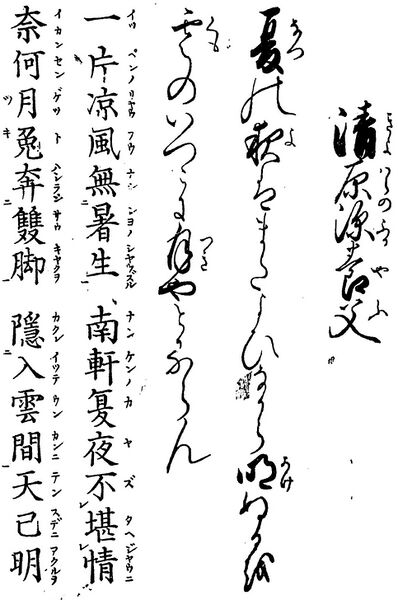 清原深養父
夏の夜はまたよひなから明ぬるを
雲のいつこに月やとるらん
一片凉風無暑生 南軒夏夜不堪情
奈何月兎奔雙脚 隱入雲間天已明